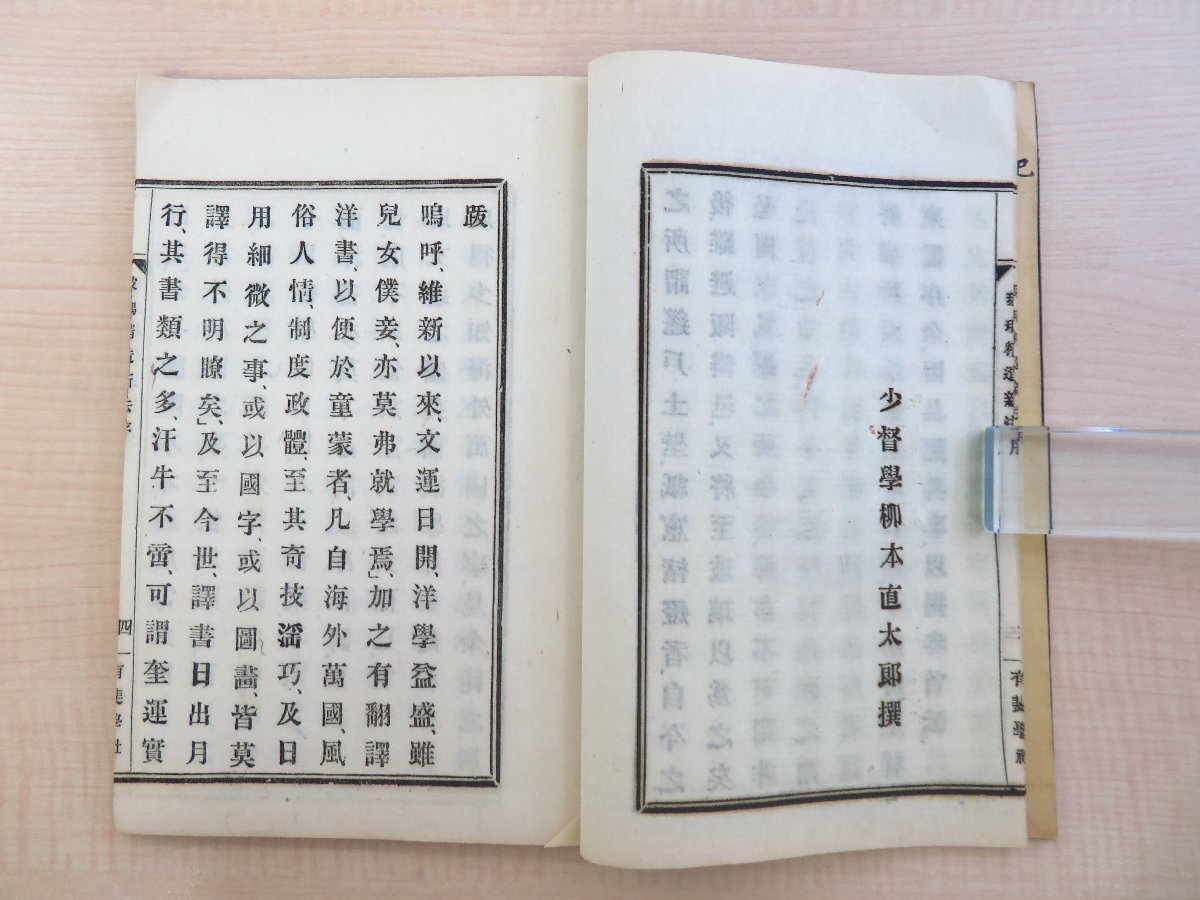 少督學柳本直太郞撰
有斐學社
跋
嗚呼、維新以來、文運日開、洋學益盛、雖
兒女僕妾、亦莫弗就學焉」、加之有翻譯
洋書、以便於童蒙者、凡自海外萬國、風
俗人情、制度政體、至其奇技滛巧、及日
用細微之事、或以國字、或以圖畵、皆莫
譯得不明瞭矣」、及至今世、譯書日出月
行、其書類之多、汗牛不啻、可謂奎運實
四